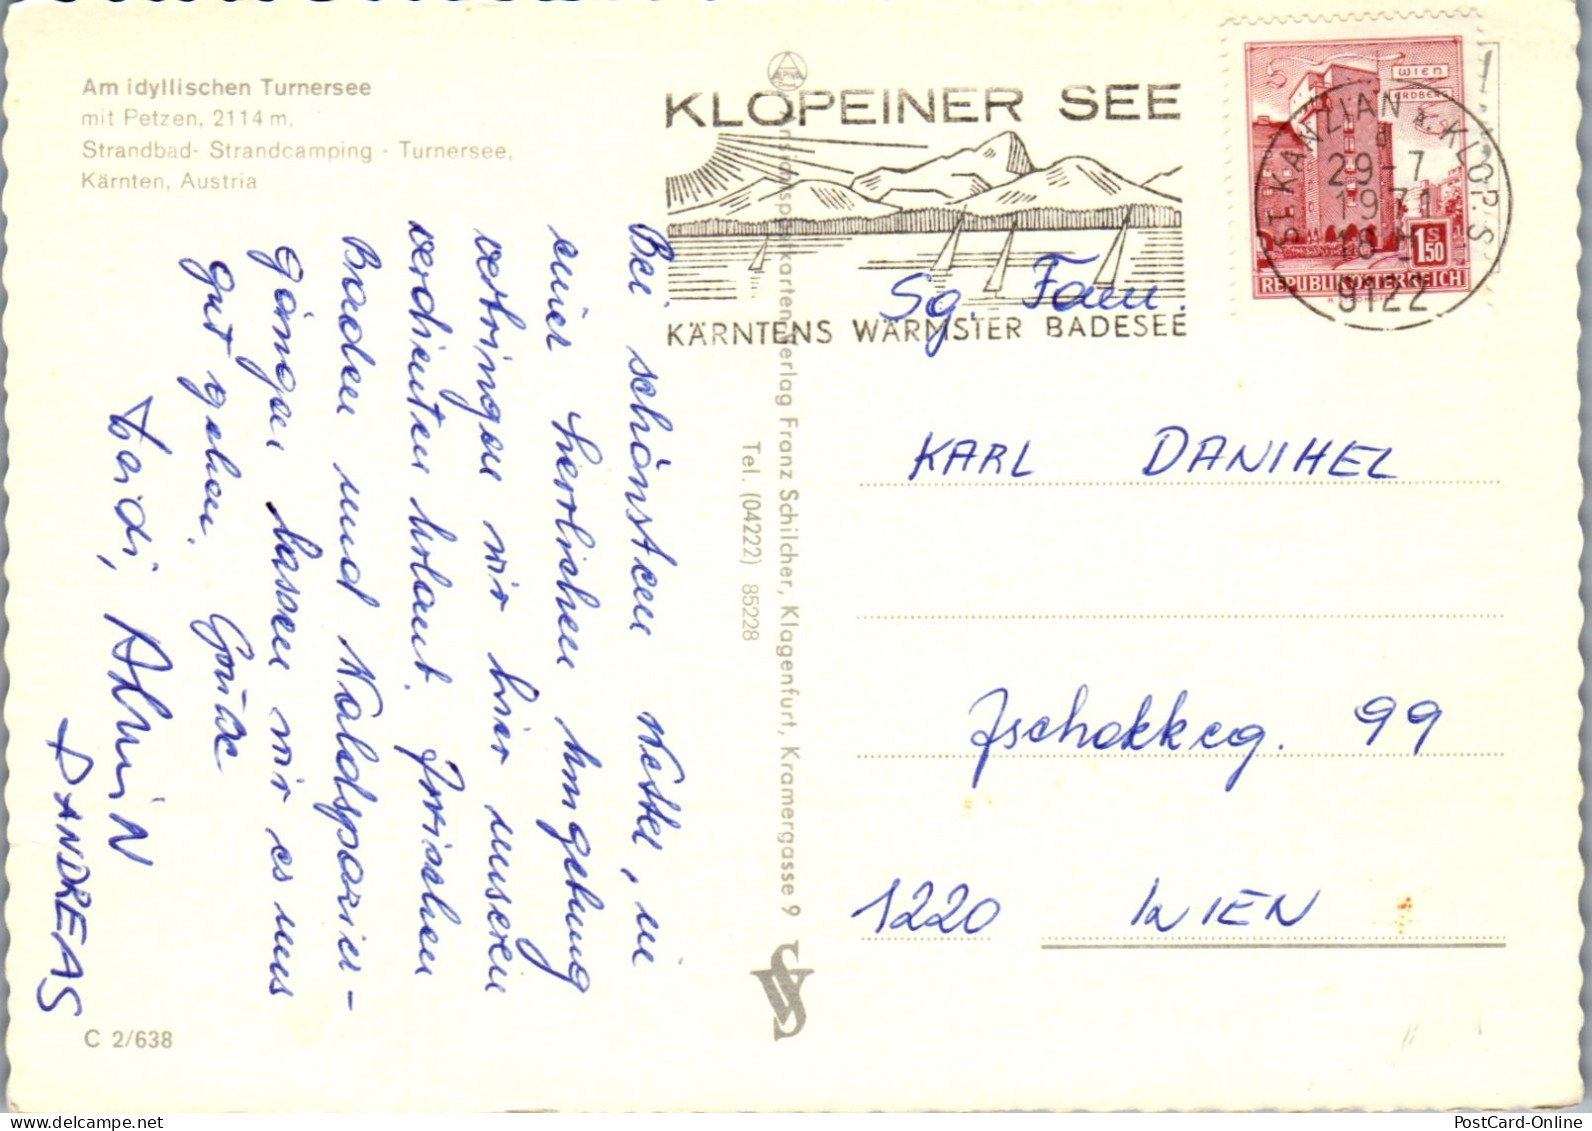 Am idyllischen Turnersee
mit Petzen, 2114 m,
Strandbad- Strandcamping - Turnersee,
Kärnten, Austria
Bei schönstem Wetter, in
einer herrlichen Umgebung
verbringen wir hier unseren
verdienten Urlaub. Zwischen
Baden und Waldspazier-
gängen lassen wir es uns
gut gehen. Grüße
ARMIN
+ ANDREAS
C 2/638
KLOPEINER SEE
KÄRNTENS WÄRMSTER BADESEE
Verlag Franz Schilcher, Klagenfurt, Kramergasse 9
Tel. (04222) 85228
WIEN
ERDBERG
1 S 50
REPUBLIK ÖSTERREICH
ST. KANZIAN a. KLOP. S.
29-7
1971
9122
Sg. Fam.
KARL DANIHEL
Zschokkeg. 99
1220 WIEN
PostCard-Online